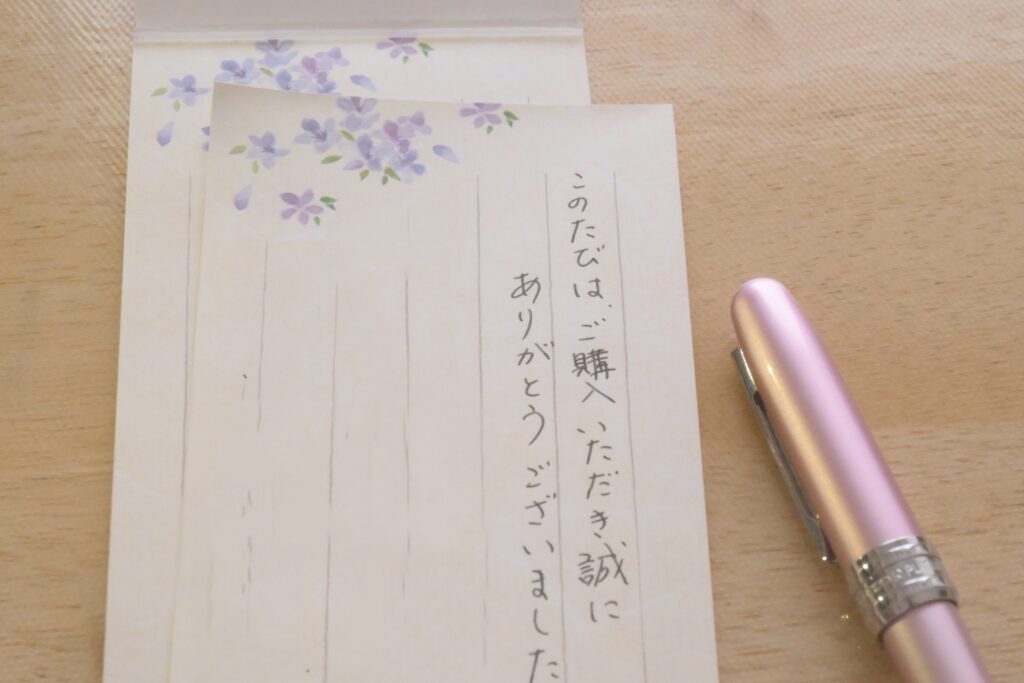 このたびは、ご購入いただき、誠に
ありがとうございました